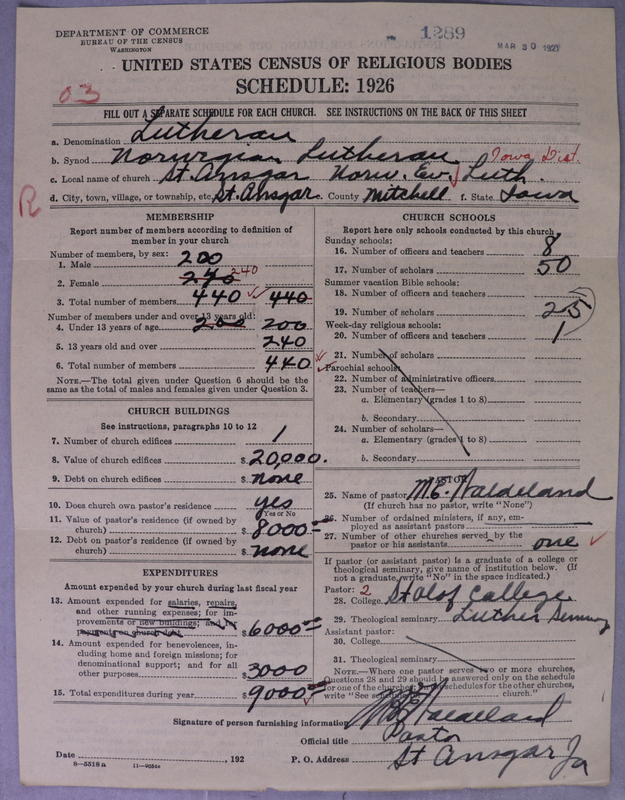 DEPARTMENT OF COMMERCE
BUREAU OF THE CENSUS
WASHINGTON
1289
MAR 30 1927
UNITED STATES CENSUS OF RELIGIOUS BODIES
SCHEDULE: 1926
03
FILL OUT A SEPARATE SCHEDULE FOR EACH CHURCH. SEE INSTRUCTIONS ON THE BACK OF THIS SHEET
a. Denomination Lutheran
b. Synod Norwegian Lutheran Iowa Dist.
c. Local name of church St. Ansgar Norw. Ev. Luth.
d. City, town, village, or township, etc. St. Ansgar e. County Mitchell f. State Iowa
R
MEMBERSHIP
Report number of members according to definition of
member in your church
Number of members, by sex:
1. Male 200
2. Female 240 240
3. Total number of members 440 440
Number of members under and over 13 years old:
4. Under 13 years of age 200 200
5. 13 years old and over 240
6. Total number of members 440
NOTE.—The total given under Question 6 should be the
same as the total of males and females given under Question 3.
CHURCH BUILDINGS
See instructions, paragraphs 10 to 12
7. Number of church edifices 1
8. Value of church edifices $20,000.
9. Debt on church edifices $ none
10. Does church own pastor's residence yes
Yes or No
11. Value of pastor's residence (if owned by
church) $8000
12. Debt on pastor's residence (if owned by
church) $ none
EXPENDITURES
Amount expended by your church during last fiscal year
13. Amount expended for salaries, repairs,
and other running expenses; for im-
provements or new buildings; and for
payments on church debt $6000
14. Amount expended for benevolences, in-
cluding home and foreign missions; for
denominational support; and for all
other purposes $3000
15. Total expenditures during year $9000
CHURCH SCHOOLS
Report here only schools conducted by this church
Sunday schools:
16. Number of officers and teachers 8
17. Number of scholars 50
Summer vacation Bible schools:
18. Number of officers and teachers
19. Number of scholars 25
Week-day religious schools:
20. Number of officers and teachers 1
21. Number of scholars
Parochial schools:
22. Number of administrative officers
23. Number of teachers—
a. Elementary (grades 1 to 8)
b. Secondary
24. Number of scholars—
a. Elementary (grades 1 to 8)
b. Secondary
PASTOR
25. Name of pastor M.E. Waldeland
(If church has no pastor, write "None")
26. Number of ordained ministers, if any, em-
ployed as assistant pastors
27. Number of other churches served by the
pastor or his assistants one
If pastor (or assistant pastor) is a graduate of a college or
theological seminary, give name of institution below. (If
not a graduate, write "No" in the space indicated.)
Pastor: 2
28. College St Olof College
29. Theological seminary Luther Seminary
Assistant pastor:
30. College
31. Theological seminary
NOTE.—Where one pastor serves two or more churches,
Questions 28 and 29 should be answered only on the schedule
for one of the churches; on schedules for the other churches,
write "See schedule church."
Signature of person furnishing information M.E. Waldeland
Official title Pastor
Date , 192 P. O. Address St Ansgar Ia
8—5518 a